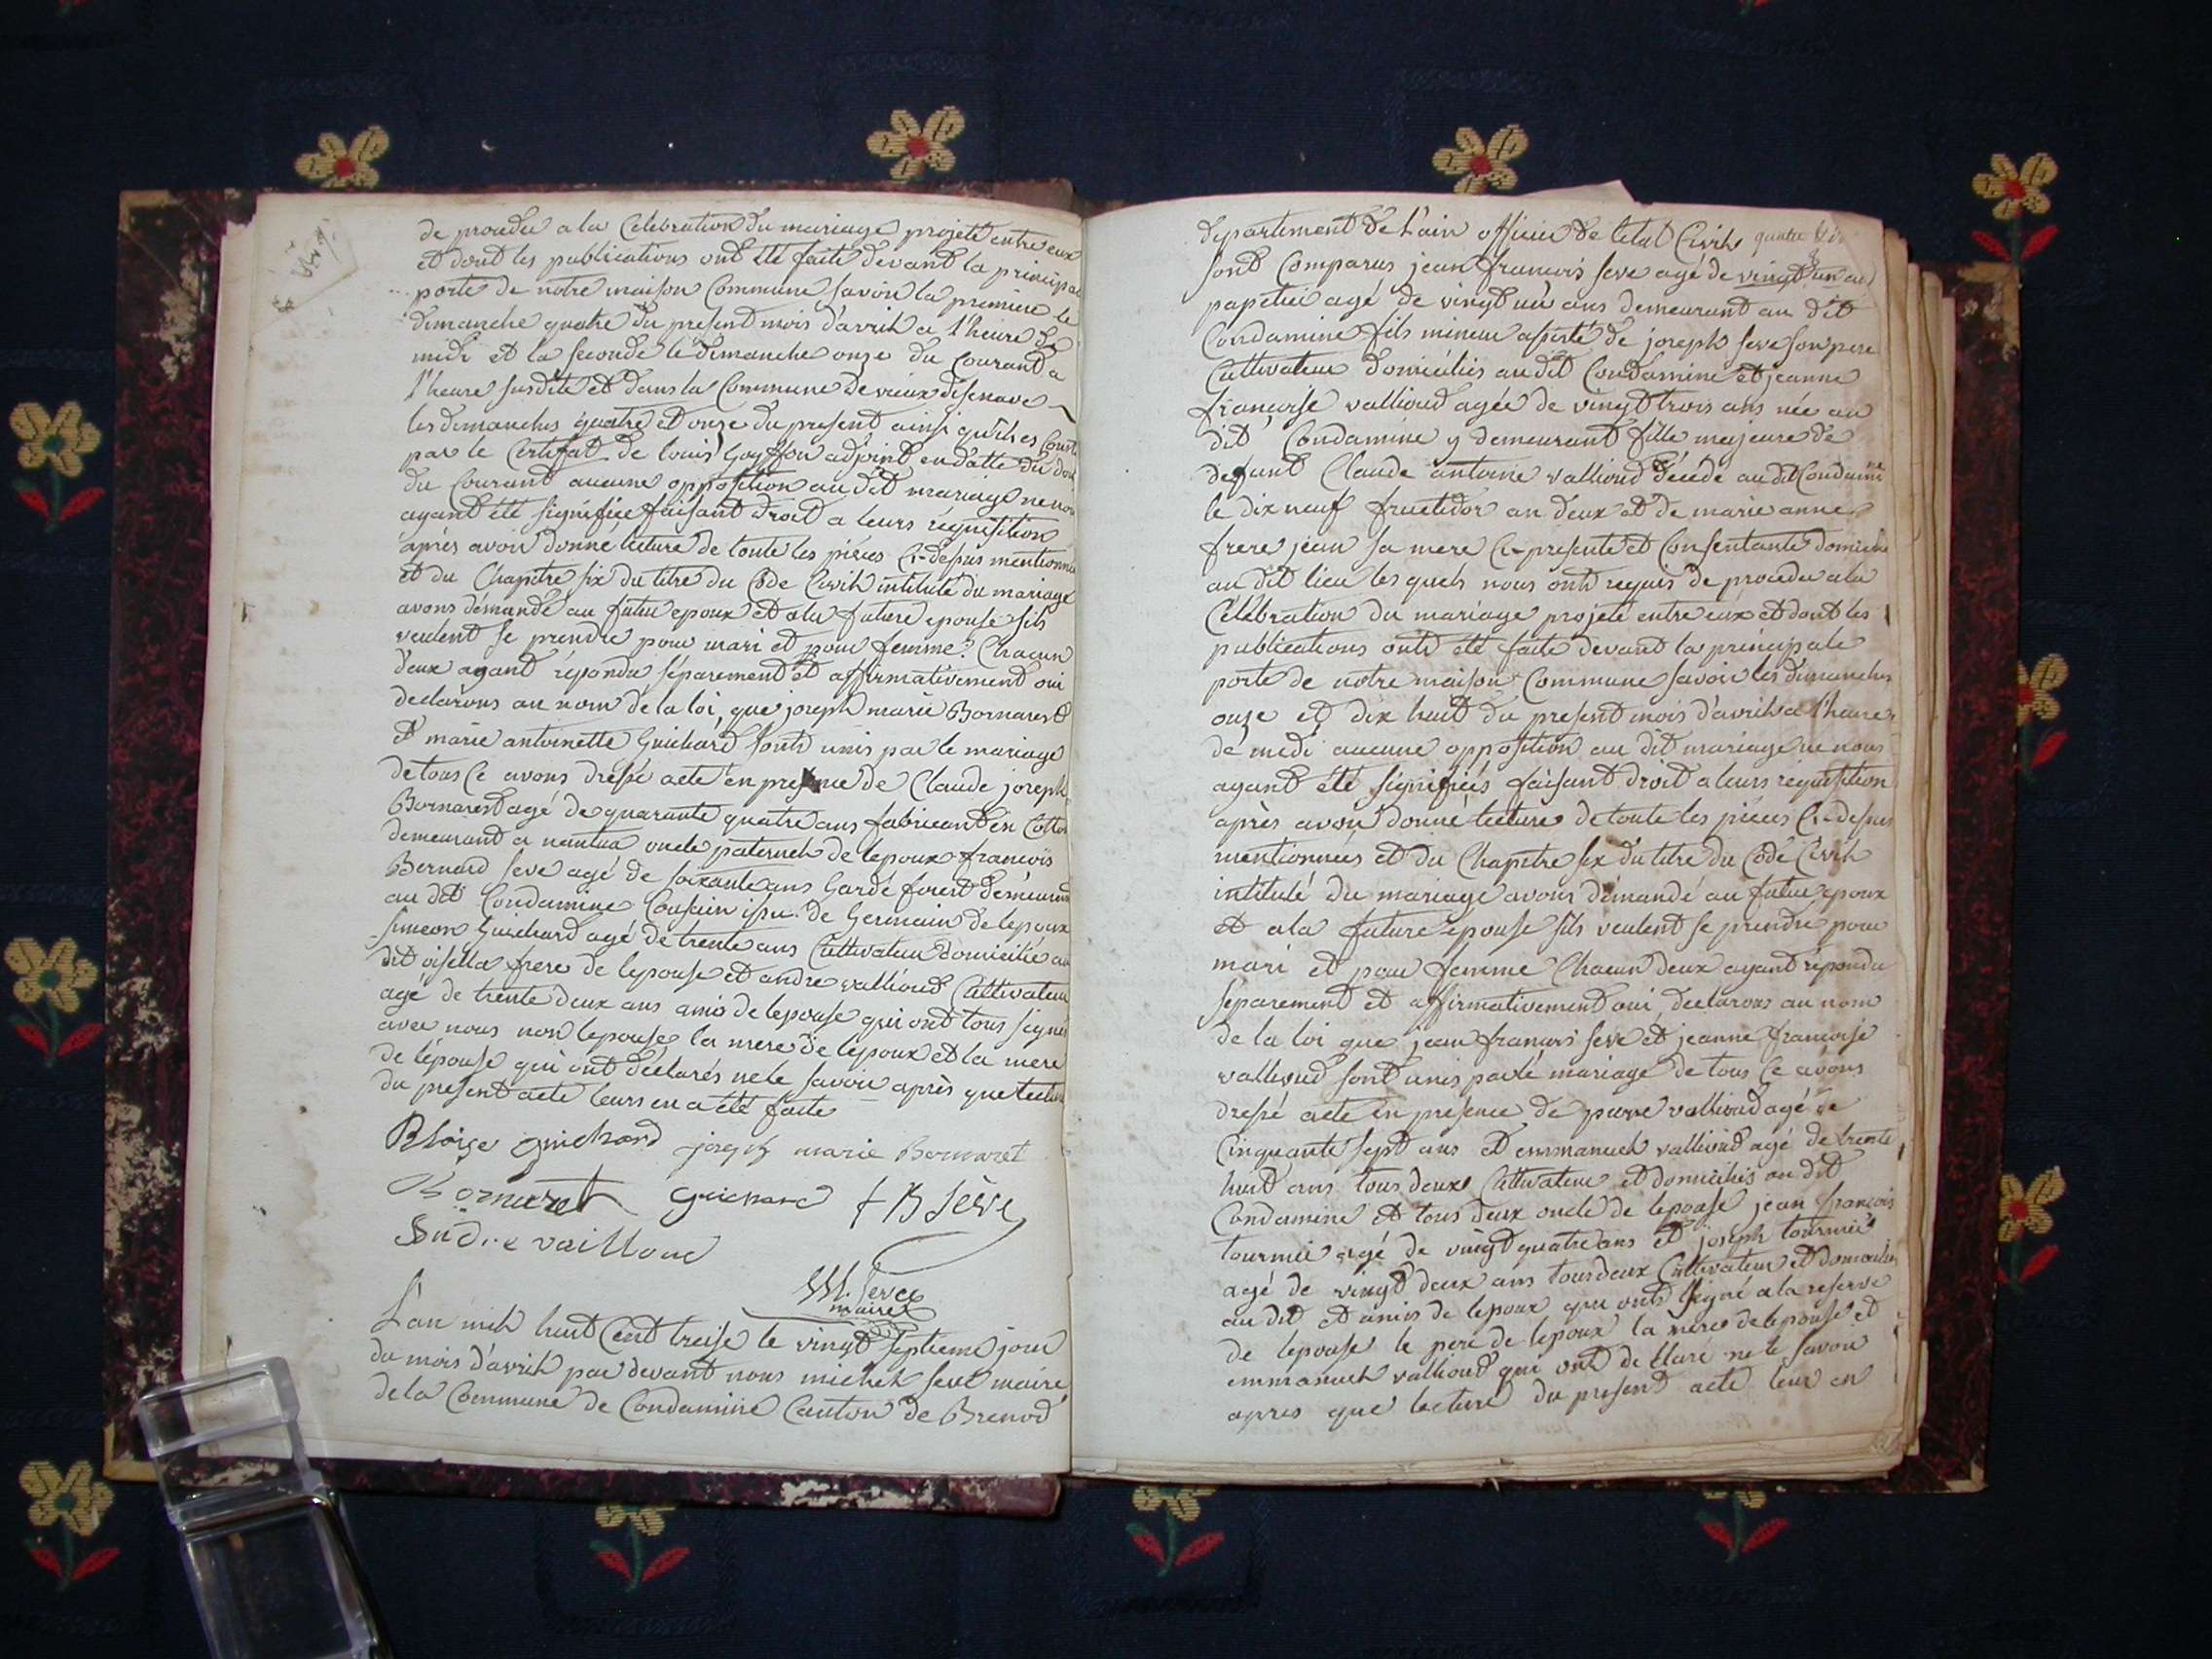 de proceder a la Celebration du mariage projeté entre eux
et dont les publications ont été faite devant la principal
porte de notre maison Commune savoir la premiere le
dimanche quatre du present mois d'avril a l'heure de
midi et la seconde le dimanche onze du Courant a
l'heure susdite et dans la Commune de vieux disenave
les dimanches quatre et onze du present ainsi qu'il es Const
par le Certifat de louis Goyffon adjoint en datte du
du Courant aucune opposition au dit mariage ne nou
ayant été signifiée faisant droit a leurs réquisition
après avoir donné lecture de toute les pièces Ci-depus mentionné
et du Chapitre six du titre du Code Civil intitulé du mariage
avons démandé au futur epoux et a la future epouse s'ils
veulent se prendre pour mari et pour femme? Chacun
d'eux ayant répondu séparement et affirmativement oui
declarons au nom de la loi, que joseph marie Bornarest
et marie antoinette Guichard sonts unis par le mariage
de tous Ce avons dressé acte en presence de Claude joseph
Bornarest agé de quarante quatre ans fabricant en Cotton
demeurant a nantua oncle paternel de lepoux francois
Bernard seve agé de soixante ans Garde forest demeurant
au dit Condamine Cousin issu de Germain de lepoux
simeon Guichard agé de trente ans Cultivateur domicilié au
dit oisella frere de lepouse et andre vallioud Cultivateur
agé de trente deux ans amis de lepouse qui ont tous signés
avec nous non lepouse la mere de lépoux et la mere
de lépouse qui ont déclarés ne le savoir après que lecture
du present acte leurs en a été faite
Bloise guichard joseph marie Bornaret
Bornaret Guichard f B Sève
André vailloud
M. Seve
maire
L'an mil huit Cent treise le vingt septieme jour
du mois d'avril par devant nous michel seve maire
de la Commune de Condamine Canton de Brenod
departement de l'ain officier de letat Civil quatre
sont Comparus jean francois seve agé de vingt un ans
papetier agé de vingt un ans demeurant au dit
Condamine fils mineur assisté de joseph seve son pere
Cultivateur domiciliés au dit Condamine et jeanne
françoise vallioud agée de vingt trois ans née au
dit Condamine y demeurant fille majeure de
defunt Claude antoine vallioud décédé au dit Condamine
le dix neuf fructidor an deux et de marie anne
frere jean sa mere Ci-presente et Consentante domicilié
au dit lieu les quels nous ont requis de proceder a la
Célébration du mariage projeté entre eux et dont les
publications onts été faite devant la principale
porte de notre maison Commune savoir les dimanches
onze et dix huit du present mois d'avril a l'heure
de midi aucune opposition au dit mariage ne nous
ayant été signifiés faisant droit a leurs réquisition
après avoir donné lecture de toute les pièces Ci-depus
mentionnées et du Chapitre six du titre du Code Civil
intitulé du mariage avons démandé au futur epoux
et a la future epouse s'ils veulent se prendre pour
mari et pour femme Chacun deux ayant répondu
séparement et affirmativement oui, declarons au nom
de la loi que jean francois seve et jeanne françoise
vallioud sont unis par le mariage de tous Ce avons
dressé acte en presence de pierre vallioud agé de
Cinquante sept ans et emmanuel vallioud agé de trente
huit ans tous deux Cultivateur et domiciliés au dit
Condamine et tous deux oncle de lepouse jean françois
tournié agé de vingt quatre ans et joseph tournié
agé de vingt deux ans tous deux Cultivateur et domiciliés
au dit et amis de lepoux qui onts signé a la reserve
de lepouse le pere de lepoux la mere de lepouse et
emmanuel vallioud qui ont déclaré ne le savoir
apres que lecture du present acte leur en